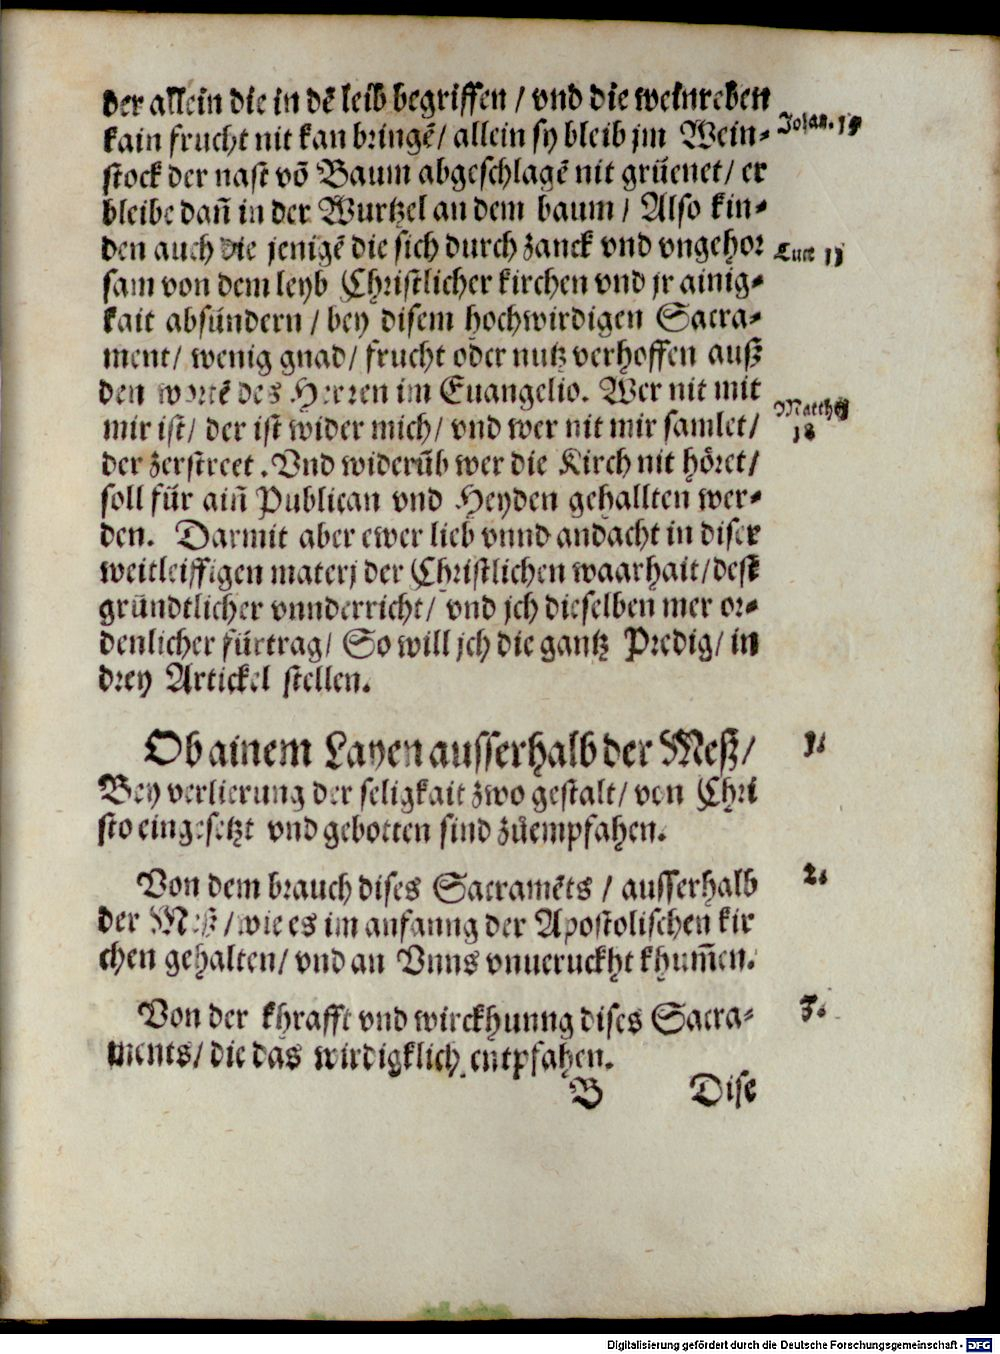 der allein die in dē leib begriffen / vnd die weinreben
kain frucht nit kan bringē / allein sy bleib jm Wein⸗
Johan. 15
stock der nast vō Baum abgeschlagē nit grüenet / er
bleibe dañ in der Wurtzel an dem baum / Also kin⸗
den auch die jenigē die sich durch zanck vnd vngehor
Luce 11
sam von dem leyb Christlicher kirchen vnd jr ainig⸗
kait absündern / bey disem hochwirdigen Sacra⸗
ment / wenig gnad / frucht oder nutz verhoffen auß
den wortē des Herren im Euangelio. Wer nit mit
Matthej
mir ist / der ist wider mich / vnd wer nit mir samlet /
18
der zerstreet. Vnd widerūb wer die Kirch nit höret /
soll für aiñ Publican vnd Heyden gehallten wer⸗
den. Darmit aber ewer lieb vnnd andacht in diser
weitleiffigen materj der Christlichen waarhait / dest
gründtlicher vnnderricht / vnd jch dieselben mer or⸗
denlicher fürtrag / So will jch die gantz Predig / in
drey Artickel stellen.
Ob ainem Layen ausserhalb der Meß /
1.
Bey verlierung der seligkait zwo gestalt / von Chri
sto eingesetzt vnd gebotten sind zůempfahen.
Von dem brauch dises Sacramēts / ausserhalb
2.
der Meß / wie es im anfanng der Apostolischen kir
chen gehalten / vnd an Vnns vnueruckht khum̄en.
Von der khrafft vnd wirckhunng dises Sacra⸗
3.
ments / die das wirdigklich entpfahen.
B Dise
Digitalisierung gefördert durch die Deutsche Forschungsgemeinschaft - DFG